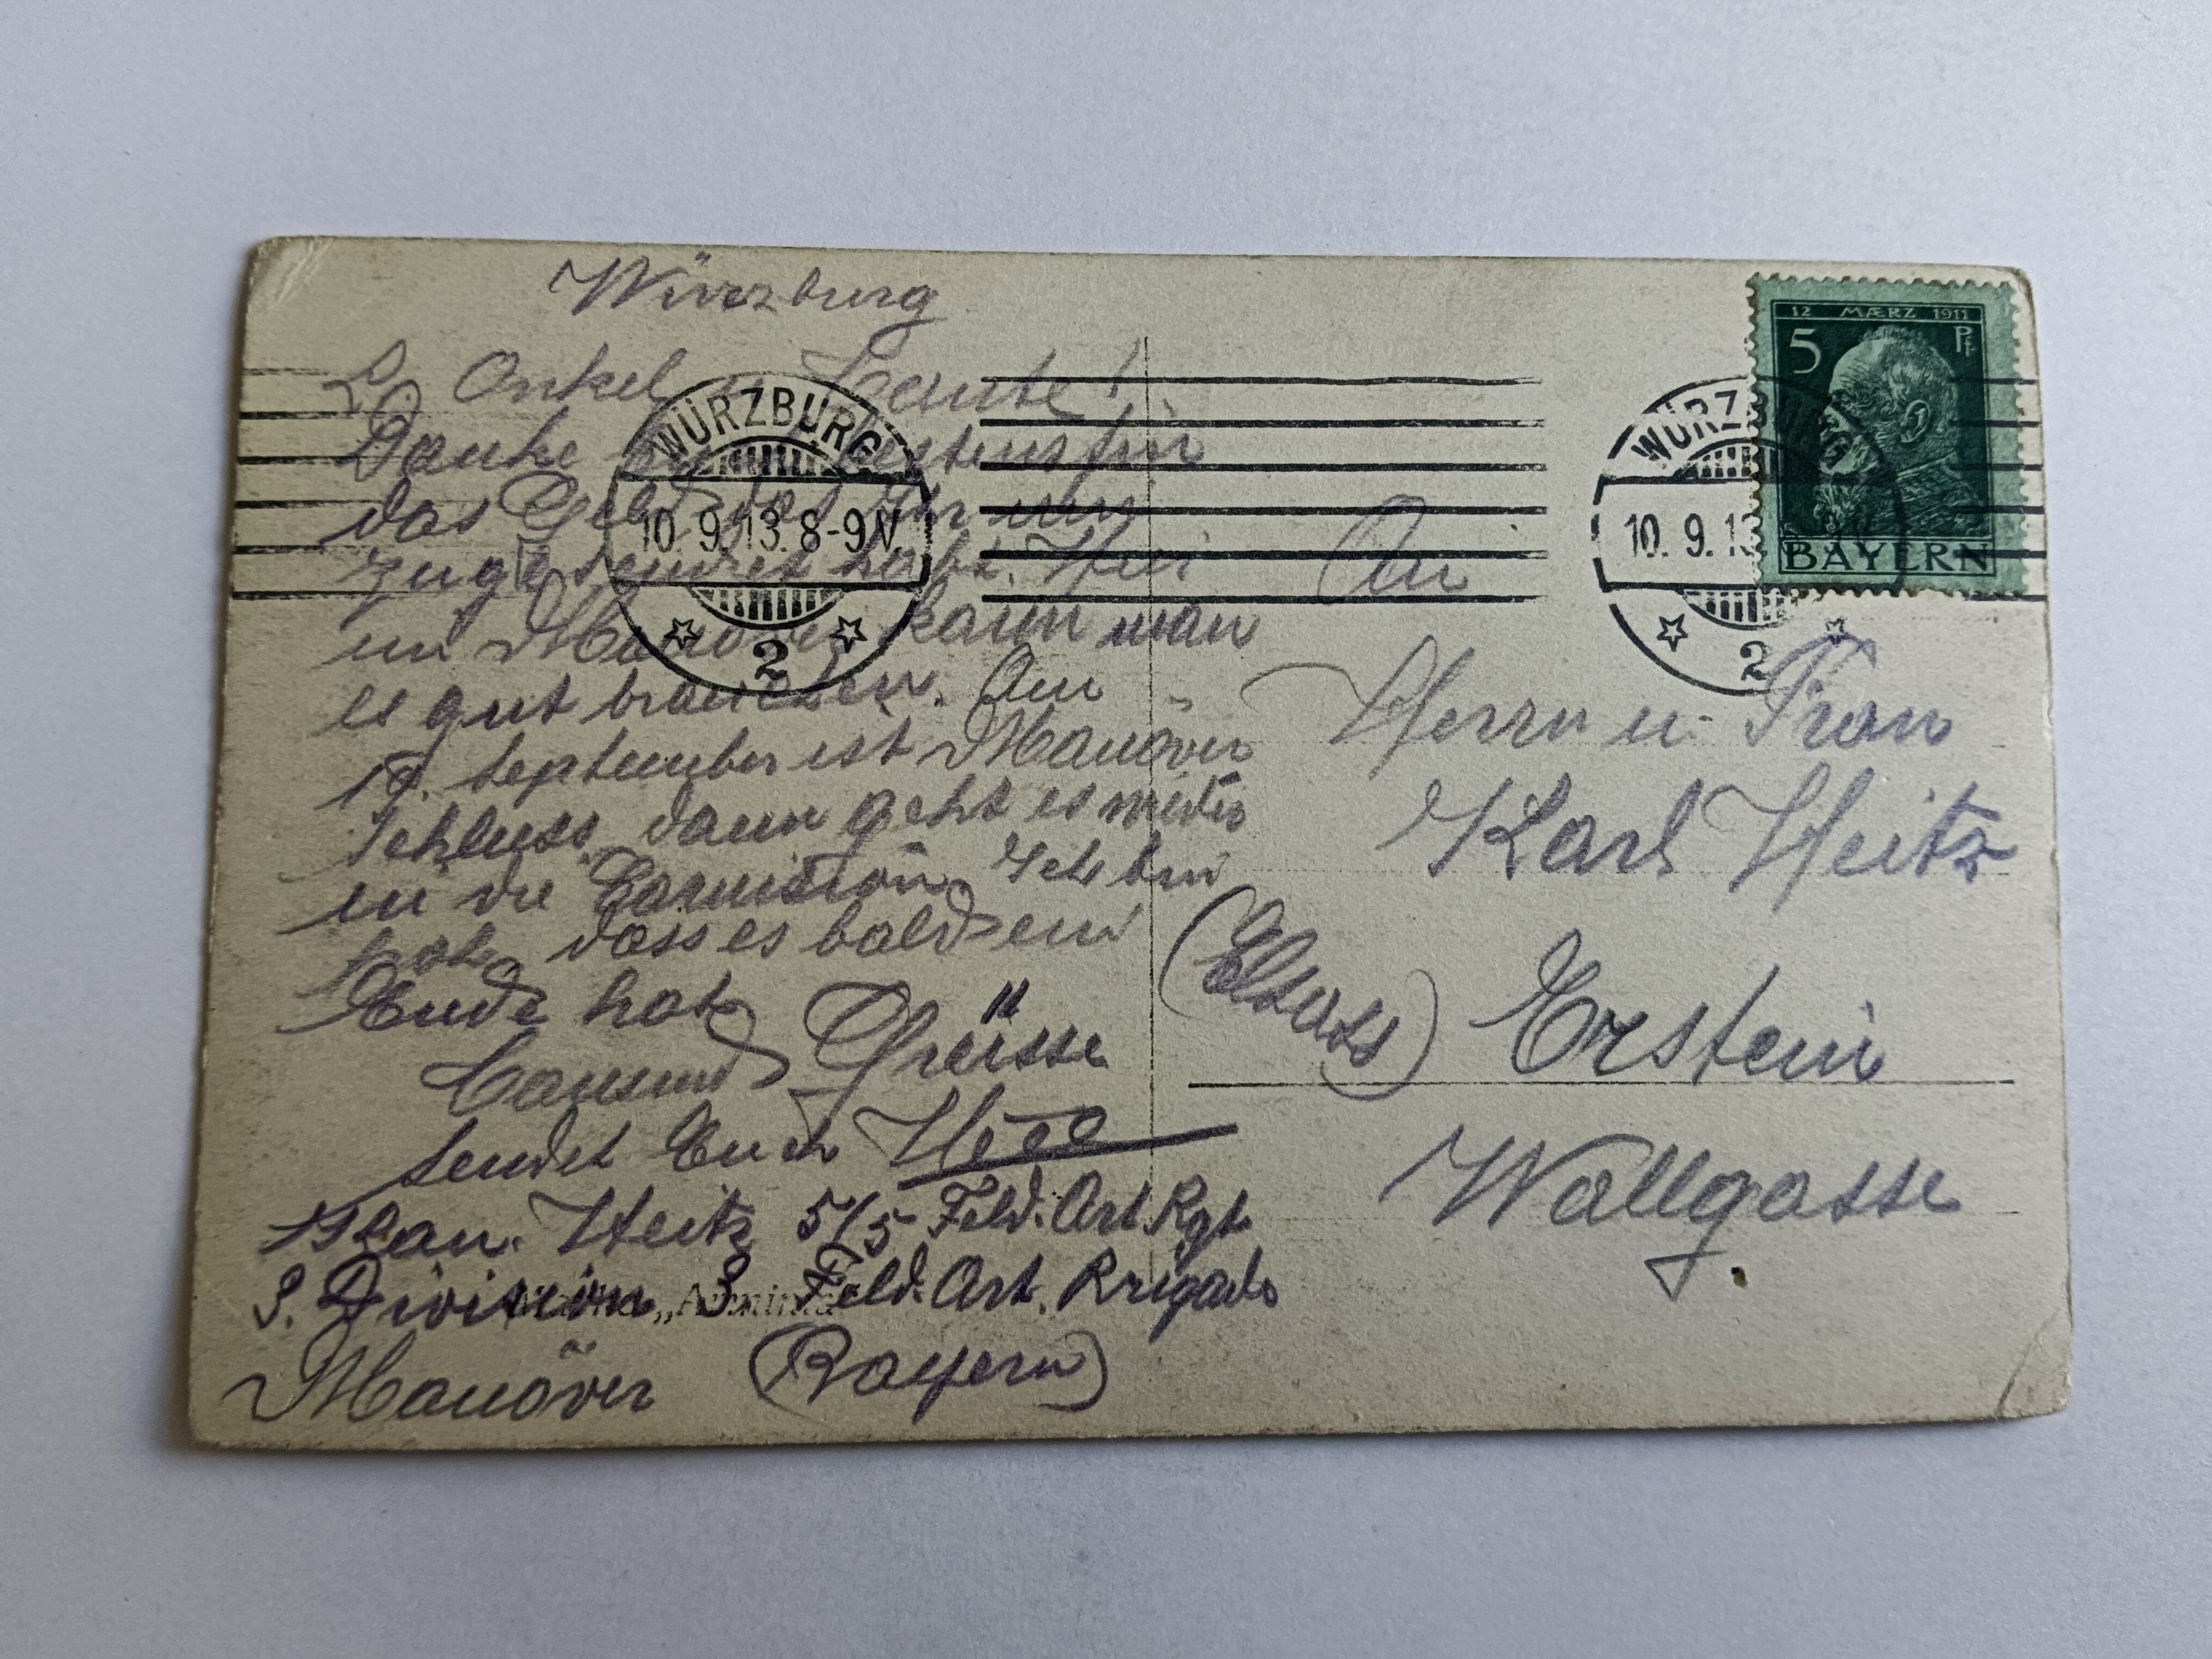 Würzburg
L. Onkel u. Tante!
Danke bestens für
das Geld das Ihr mir
zugesendet habt. Hier
im Manöver kann man
es gut brauchen. Am
September ist Manöver
schluss, dann geht es wieder
in die Garnision. Ich bin
froh, dass es bald ein
Ende hat.
Tausend Grüsse
sendet Euch
Kan. Heitz 5/5 Feld. Art. Rgt.
3. Division 3. Feld. Art. Brigade
Manöver (Bayern)
Marke „Arminia"
WÜRZBURG
10. 9. 13. 8-9 V.
2
WÜRZBURG
10. 9. 13
2
12 MÆRZ 1911
5 Pf.
BAYERN
An
Herrn u. Frau
Karl Heitz
(Elsass) Erstein
Wallgasse